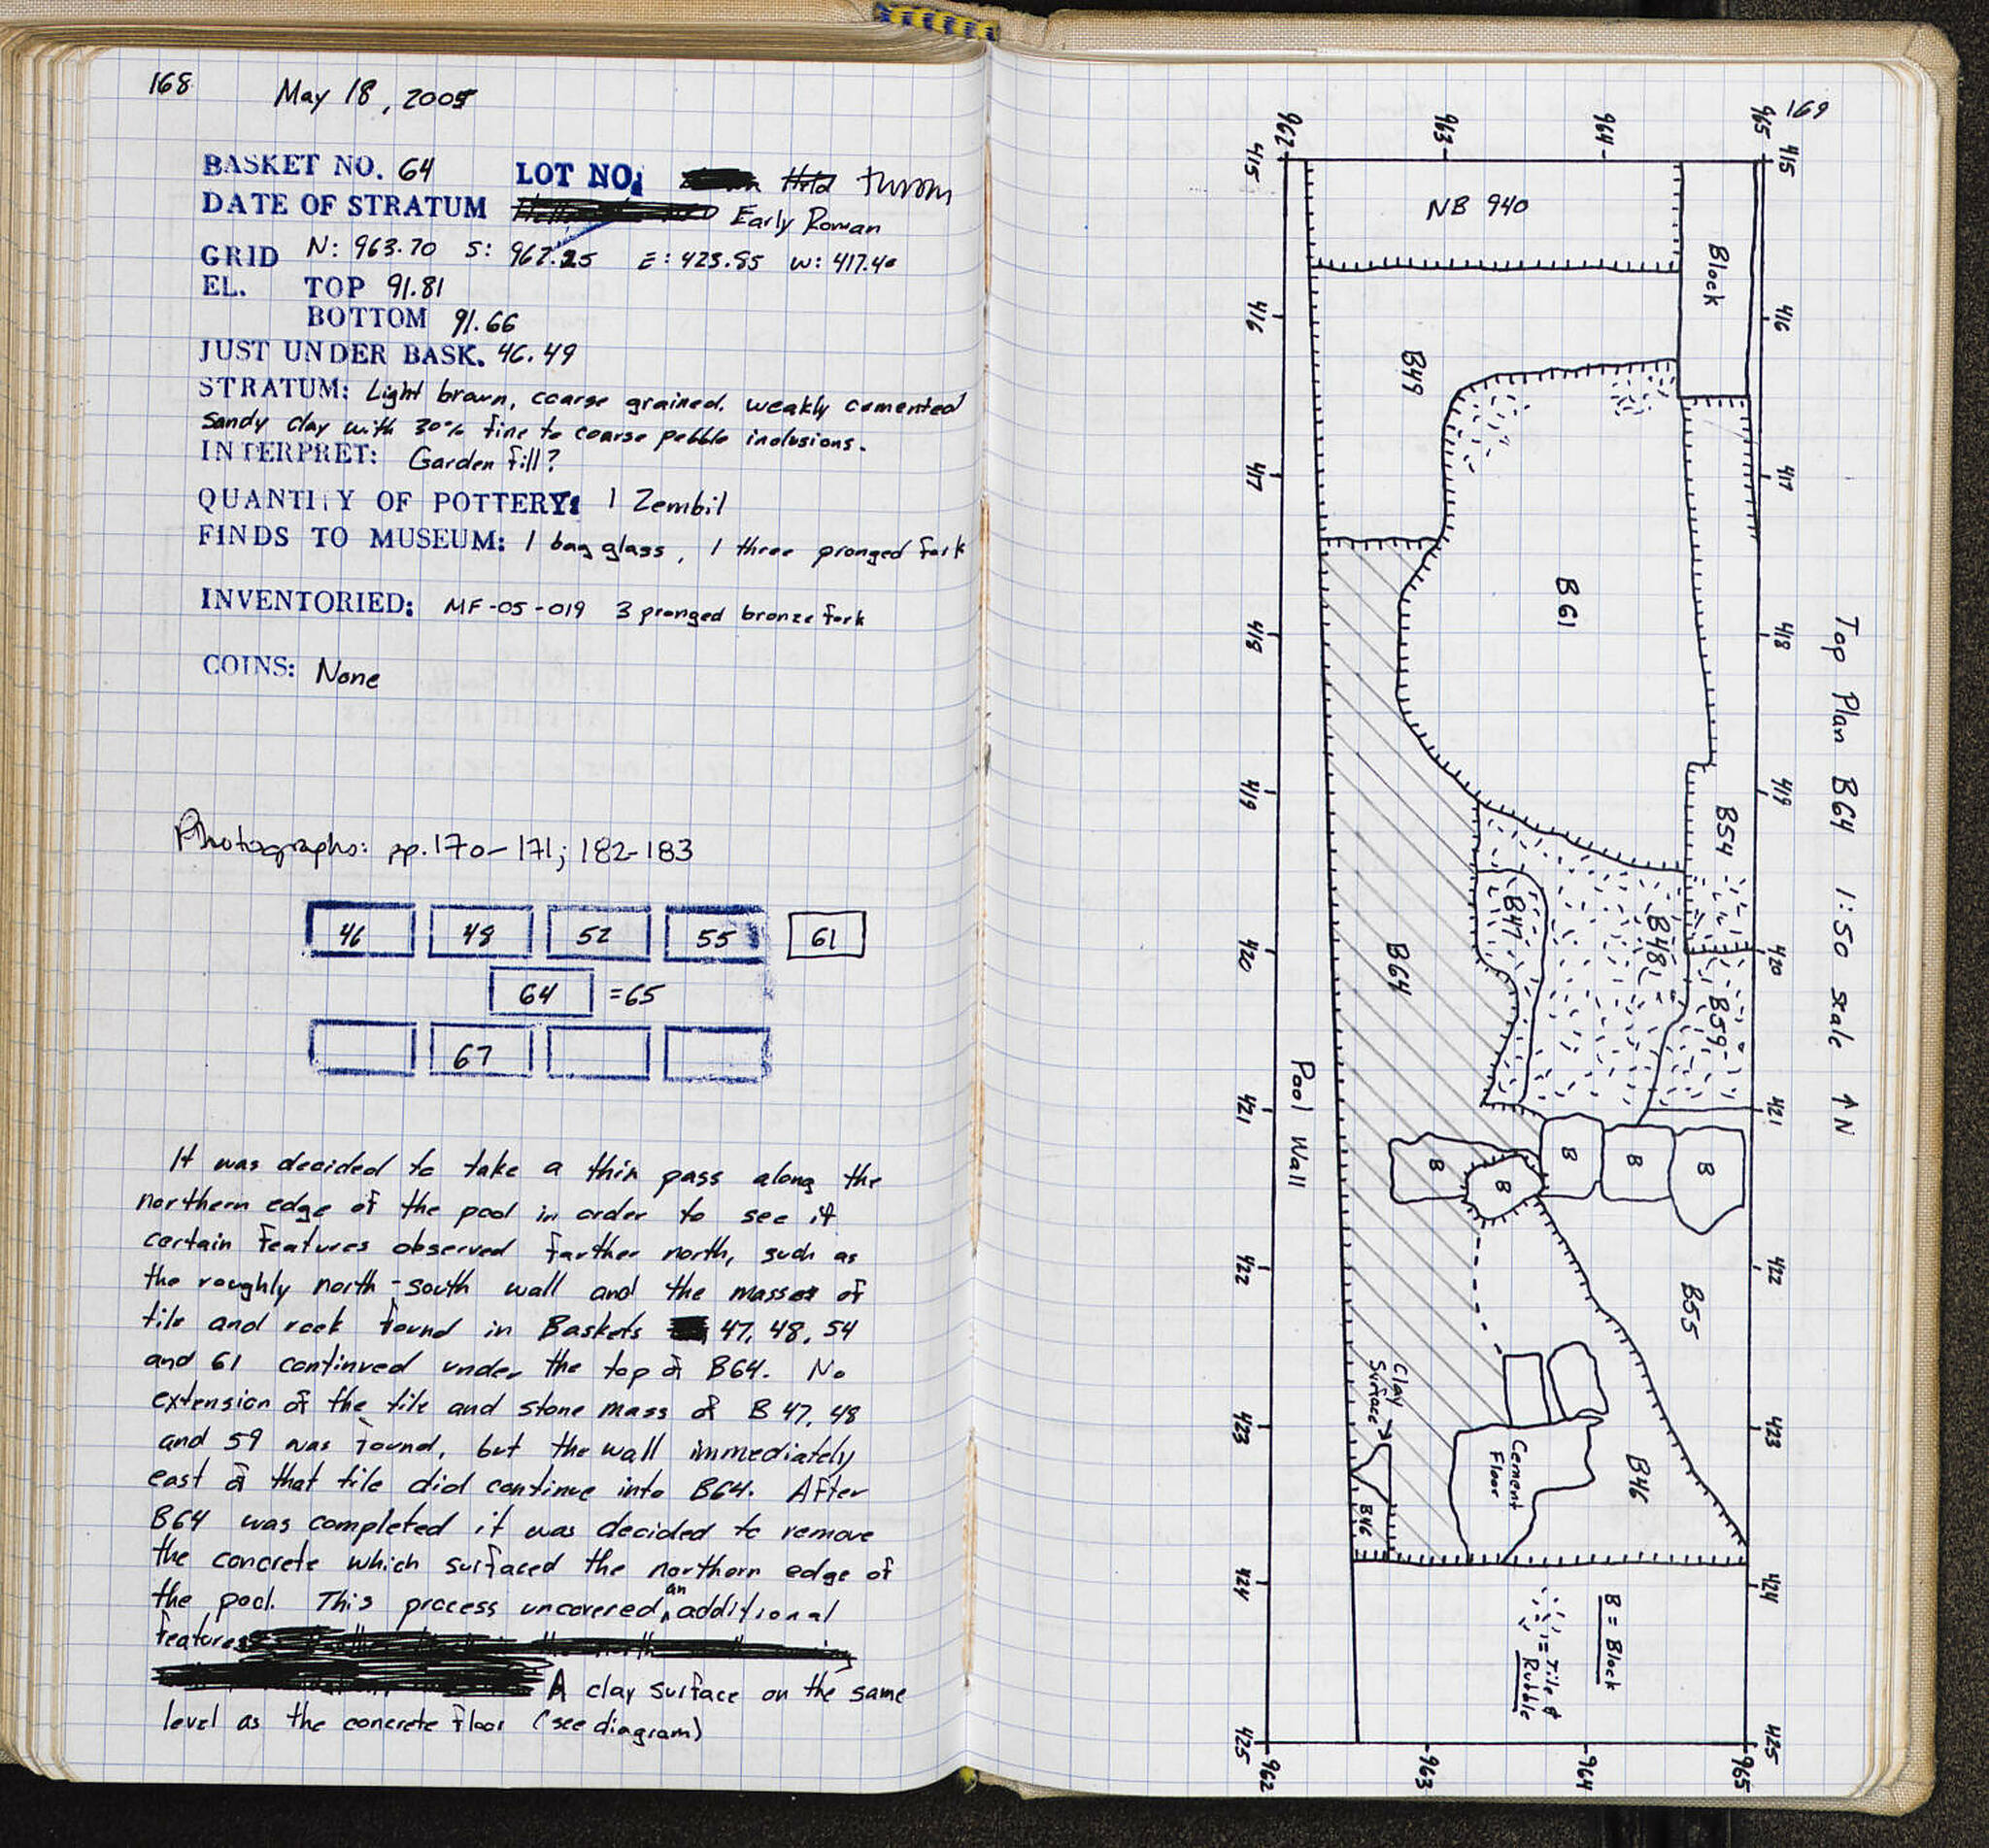 168
May 18, 2005
BASKET NO. 64 LOT NO. throm
DATE OF STRATUM Early Roman
GRID N: 963.70 S: 962.25 E: 423.85 W: 417.40
EL. TOP 91.81
BOTTOM 91.66
JUST UNDER BASK. 46.49
STRATUM: Light brown, coarse grained, weakly cemented
sandy clay with 30% fine to coarse pebble inclusions.
INTERPRET: Garden fill?
QUANTITY OF POTTERY: 1 Zembil
FINDS TO MUSEUM: 1 bag glass, 1 three pronged fork
INVENTORIED: MF-05-019 3 pronged bronze fork
COINS: None
Photographs: pp. 170-171; 182-183
46 48 52 55 61
64 =65
67
It was decided to take a thin pass along the
northern edge of the pool in order to see if
certain features observed farther north, such as
the roughly north-south wall and the masses of
tile and rock found in Baskets 47, 48, 54
and 61 continued under the top of B64. No
extension of the tile and stone mass of B 47, 48
and 59 was found, but the wall immediately
east of that tile did continue into B64. After
B64 was completed it was decided to remove
the concrete which surfaced the northern edge of
the pool. This process uncovered an additional
features
A clay surface on the same
level as the concrete floor (see diagram)
169
Top Plan B64 1:50 scale ↑N
415 416 417 418 419 420 421 422 423 424 425
965
964
963
962
Block
NB 940
B49
B61
B54
B59
B48
B47
B64
B
B
B
B
B
B55
B46
Cement
Floor
Clay
Surface
B46
Pool Wall
B = Block
= Tile &
Rubble
965
964
963
962
415 416 417 418 419 420 421 422 423 424 425